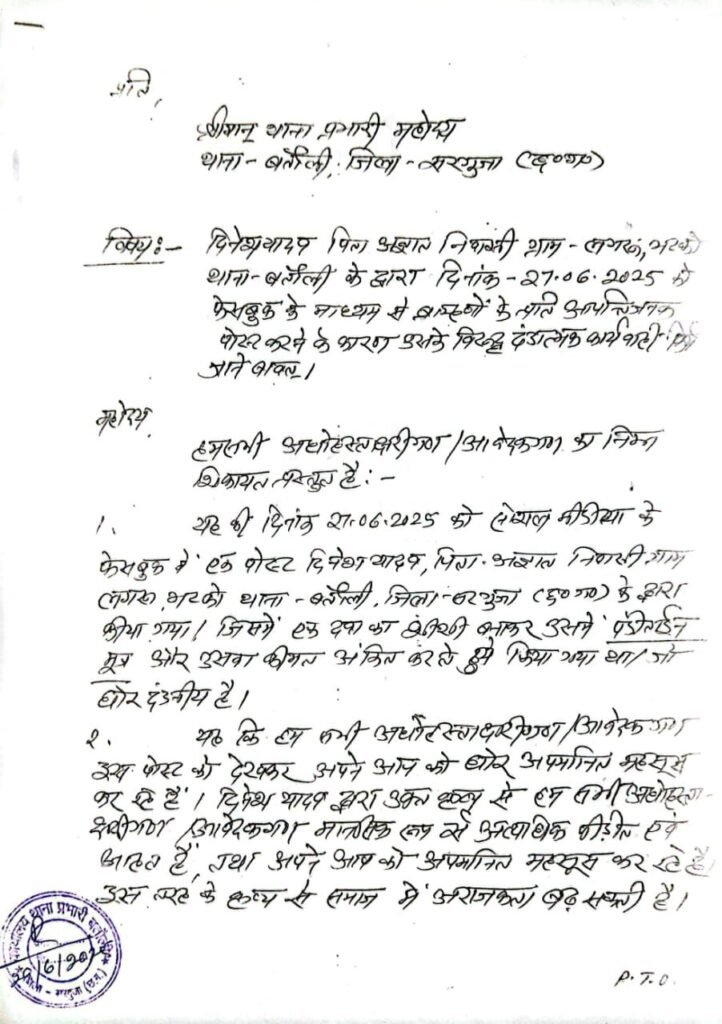 प्रति,
श्रीमान् थाना प्रभारी महोदय
थाना - बतौली, जिला - सरगुजा (छ०ग०)
विषय:- दिनेश यादव पिता निवासी ग्राम - भटको
थाना - बतौली के द्वारा दिनांक - 27.06.2025 को
फेसबुक के माध्यम से ब्राम्हणों के प्रति आपत्तिजनक
पोस्ट करने के कारण उसके विरुद्ध दंडात्मक कार्यवाही किये
जाने बाबत्।
महोदय,
हम सभी अधोहस्ताक्षरीगण/आवेदकगण का निम्न
शिकायत प्रस्तुत है:-
1. यह की दिनांक 27.06.2025 को सोशल मीडिया के
फेसबुक में एक पोस्ट दिनेश यादव, पिता निवासी ग्राम
भटको थाना - बतौली, जिला - सरगुजा (छ०ग०) के द्वारा
किया गया। जिसमें एक दवा का बनाकर उसमें
मूत्र और उसका कीमत अंकित करते हुये किया गया था। जो
घोर दंडनीय है।
2. यह कि हम सभी अधोहस्ताक्षरीगण/आवेदकगण
इस पोस्ट को देखकर अपने आप को घोर अपमानित महसूस
कर रहे हैं। दिनेश यादव द्वारा उक्त कृत्य से हम सभी अधोहस्ता-
क्षरीगण/आवेदकगण मानसिक रूप से अत्याधिक पीड़ित एवं
आहत हैं, तथा अपने आप को अपमानित महसूस कर रहे हैं।
इस तरह के कृत्य से समाज में अराजकता बढ़ सकती है।
कार्यालय थाना प्रभारी बतौली
/6/202
जिला - सरगुजा (छ.ग.)
P.T.O.